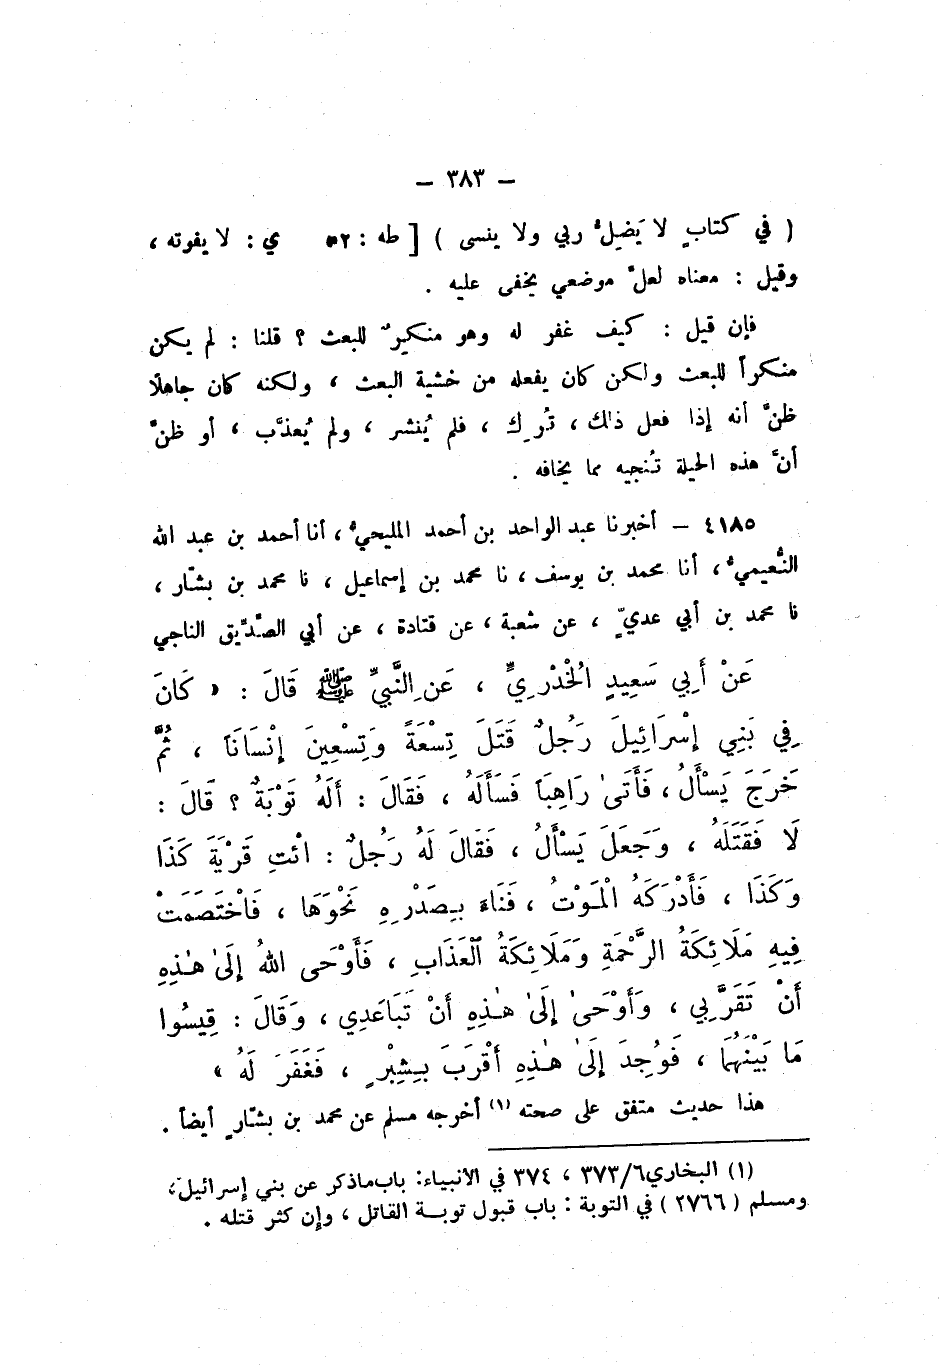 — ٣٨٣ —
( في كتابٍ لا يَضِلُّ ربي ولا ينسى ) [ طه : ٥٢ ي : لا يفوته ،
وقيل : معناه لعلَّ موضعي يخفى عليه .
فإن قيل : كيف غفر له وهو منكِرٌ للبعث ؟ قلنا : لم يكن
منكراً للبعث ولكن كان يفعله من خشية البعث ، ولكنه كان جاهلاً
ظنَّ أنه إذا فعل ذلك ، تُرِك ، فلم يُنشر ، ولم يُعذَّب ، أو ظنَّ
أنَّ هذه الحيلة تُنجيه مما يخافه .
٤١٨٥ – أخبرنا عبد الواحد بن أحمد المليحيُّ ، أنا أحمد بن عبد الله
النُّعيميُّ ، أنا محمد بن يوسف ، نا محمد بن إسماعيل ، نا محمد بن بشّار ،
نا محمد بن أبي عديّ ، عن شعبة ، عن قتادة ، عن أبي الصِّدِّيق الناجي
عَنْ أَبِي سَعِيدٍ الْخُدْرِيِّ ، عَنِ النَّبِيِّ ﷺ قَالَ : « كَانَ
فِي بَنِي إِسْرَائِيلَ رَجُلٌ قَتَلَ تِسْعَةً وَتِسْعِينَ إِنْسَانَاً ، ثُمَّ
خَرَجَ يَسْأَلُ ، فَأَتَى رَاهِبَاً فَسَأَلَهُ ، فَقَالَ : أَلَهُ تَوْبَةٌ ؟ قَالَ :
لَا فَقَتَلَهُ ، وَجَعَلَ يَسْأَلُ ، فَقَالَ لَهُ رَجُلٌ : ائْتِ قَرْيَةَ كَذَا
وَكَذَا ، فَأَدْرَكَهُ الْمَوْتُ ، فَنَاءَ بِصَدْرِهِ نَحْوَهَا ، فَاخْتَصَمَتْ
فِيهِ مَلَائِكَةُ الرَّحْمَةِ وَمَلَائِكَةُ الْعَذَابِ ، فَأَوْحَى اللهُ إِلَىٰ هٰذِهِ
أَنْ تَقَرَّبِي ، وَأَوْحَىٰ إِلَىٰ هٰذِهِ أَنْ تَبَاعَدِي ، وَقَالَ : قِيسُوا
مَا بَيْنَهُمَا ، فَوُجِدَ إِلَىٰ هٰذِهِ أَقْرَبَ بِشِبْرٍ ، فَغَفَرَ لَهُ »
هذا حديث متفق على صحته (١) أخرجه مسلم عن محمد بن بشّارٍ أيضاً .
(١) البخاري ٣٧٣/٦ ، ٣٧٤ في الأنبياء: باب ماذكر عن بني إسرائيل،
ومسلم (٢٧٦٦) في التوبة : باب قبول توبة القاتل ، وإن كثر قتله .